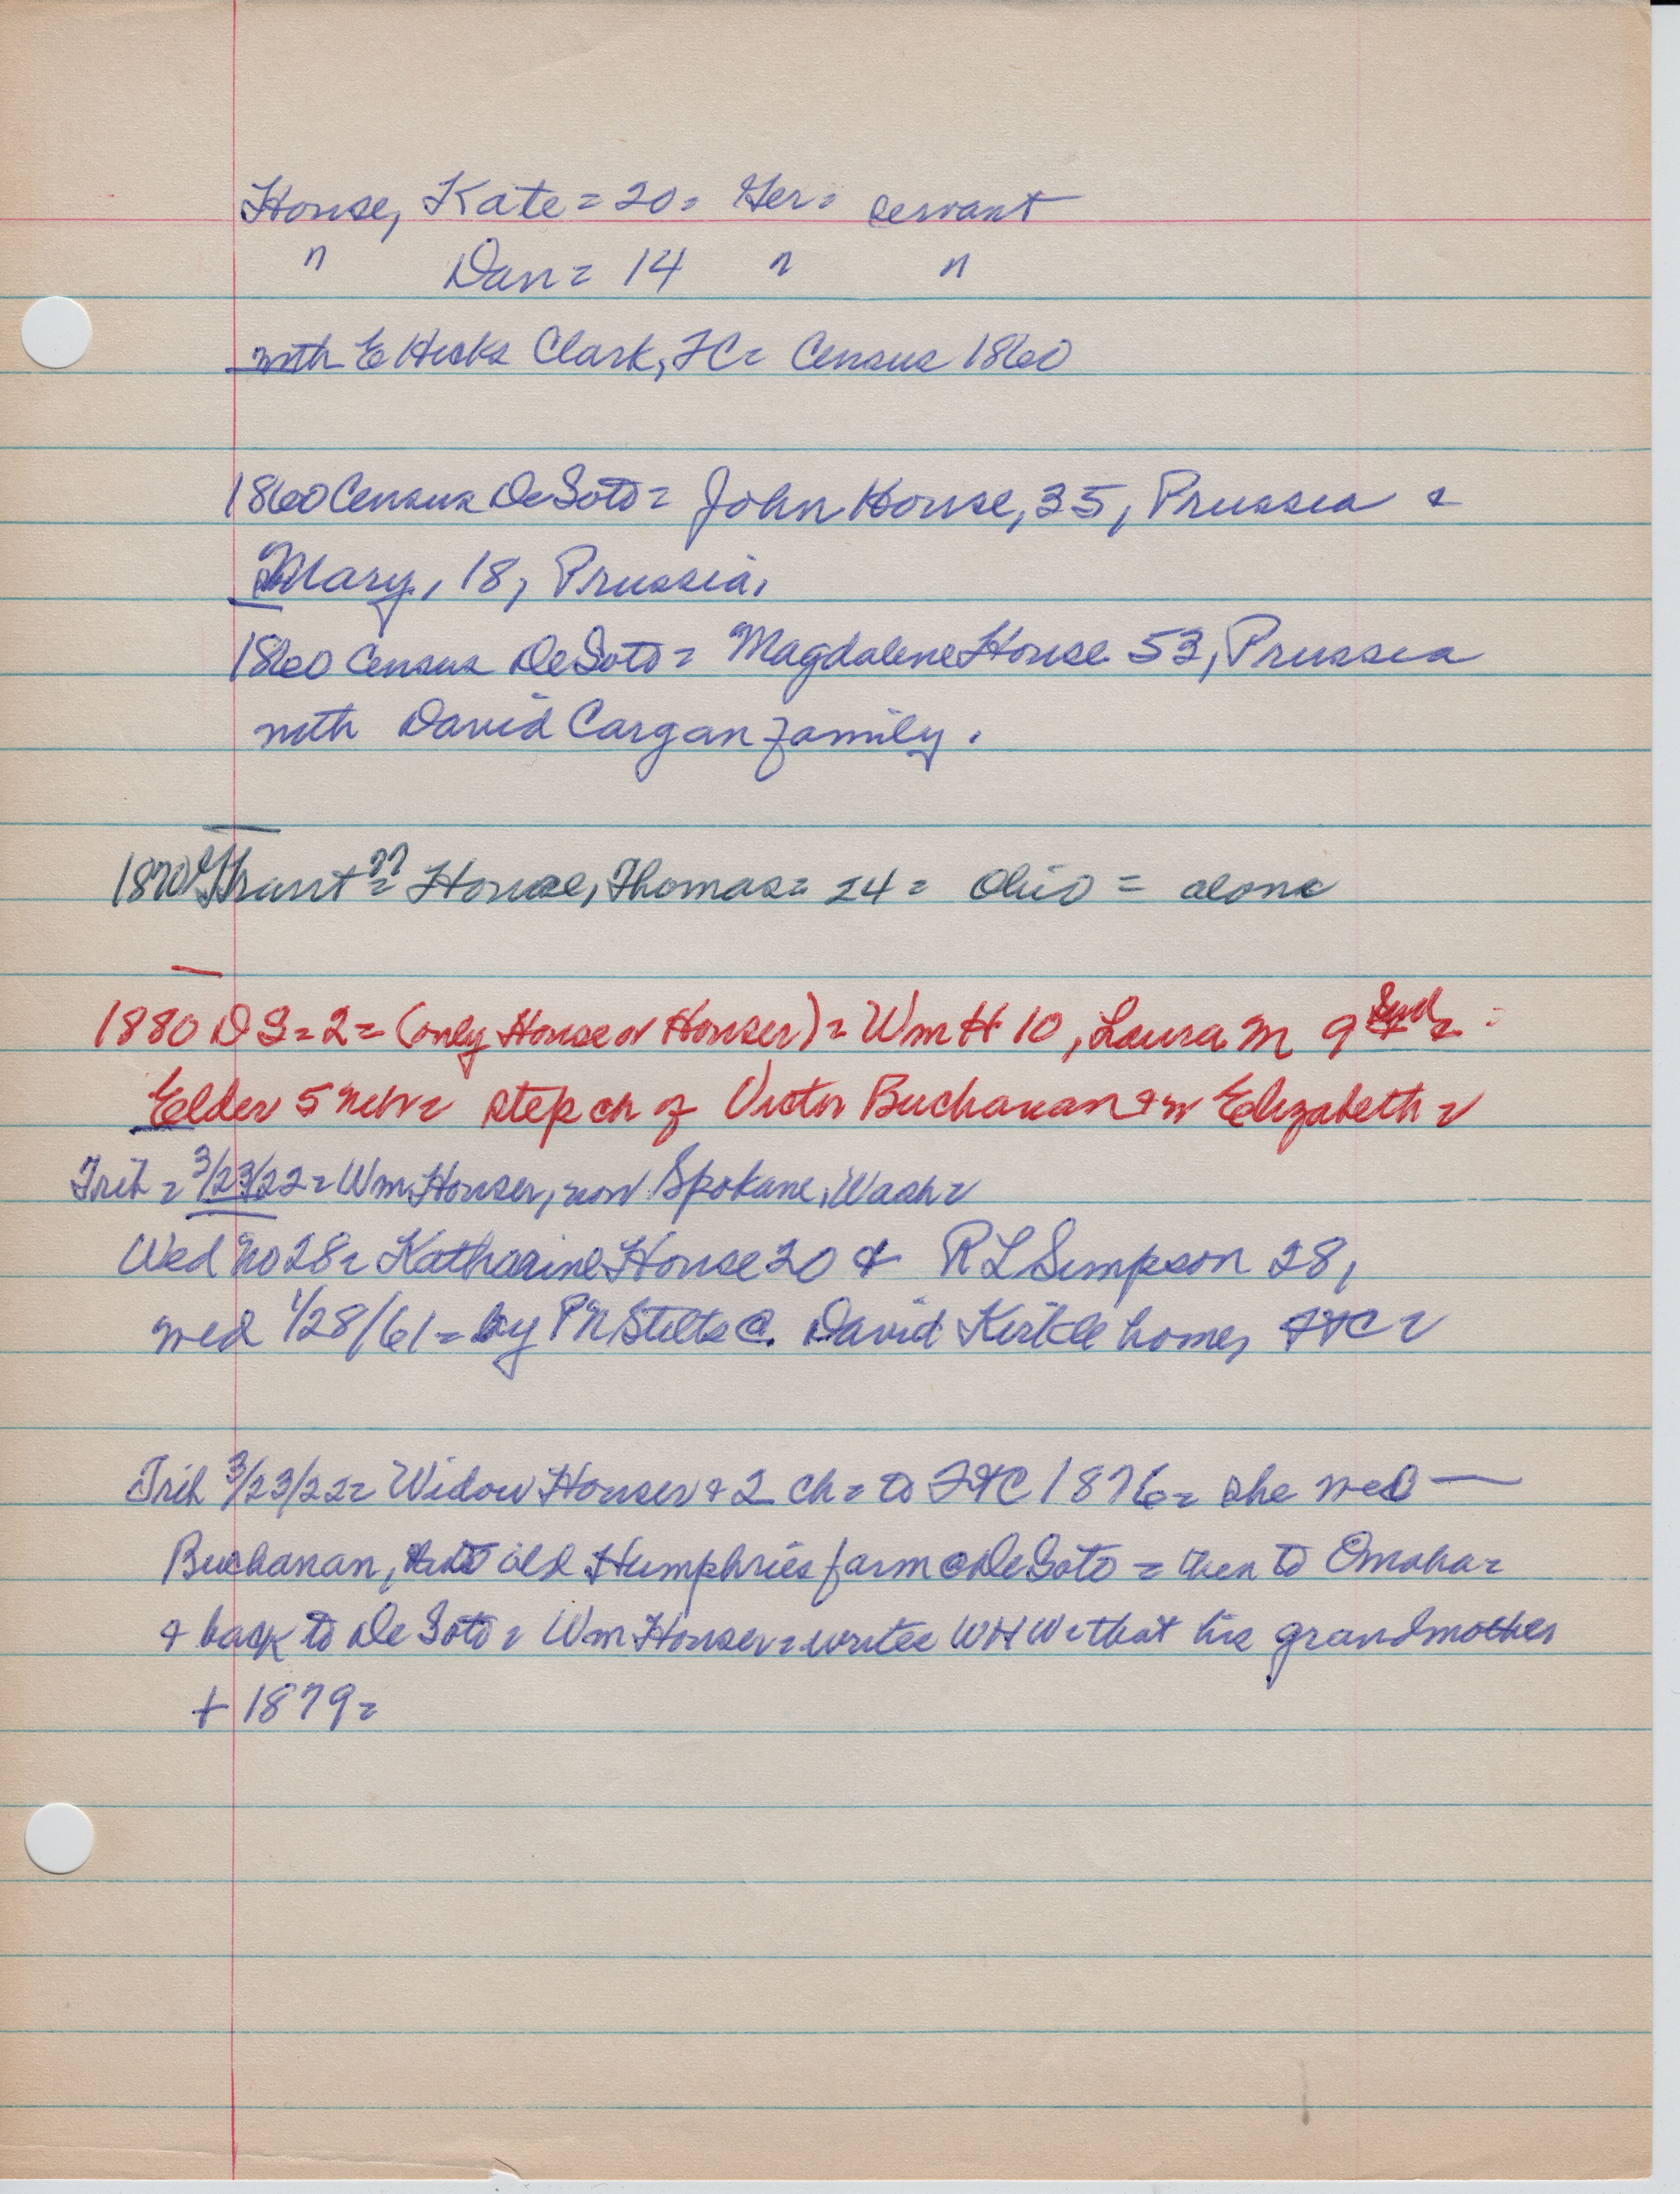 House, Kate = 20 = Ger = servant
" Dan = 14 " "
with E Hicks Clark, FC = Census 1860
1860 Census DeSoto = John House, 35, Prussia &
Mary, 18, Prussia.
1860 Census DeSoto = Magdalene House 53, Prussia
with David Cargan family.
1870 Grant ?? = House, Thomas = 24 = Ohio = alone
1880 DS = 2 = (only House or Houser) = Wm H 10, Laura M 9 =
Elder 5 = step ch of Victor Buchanan & w Elizabeth =
Trib = 3/23/22 = Wm Houser, now Spokane, Wash =
Wed No 28 = Katharine House 20 & R L Simpson 28,
wed 1/28/61 = by P N Stilts @ David Kirtle home, FtC =
Trib 3/23/22 = Widow Houser & 2 ch = to FtC 1876 = she wed —
Buchanan, to old Humphries farm @ DeSoto = then to Omaha =
& back to DeSoto = Wm Houser = writes WHW = that his grandmother
+ 1879 =